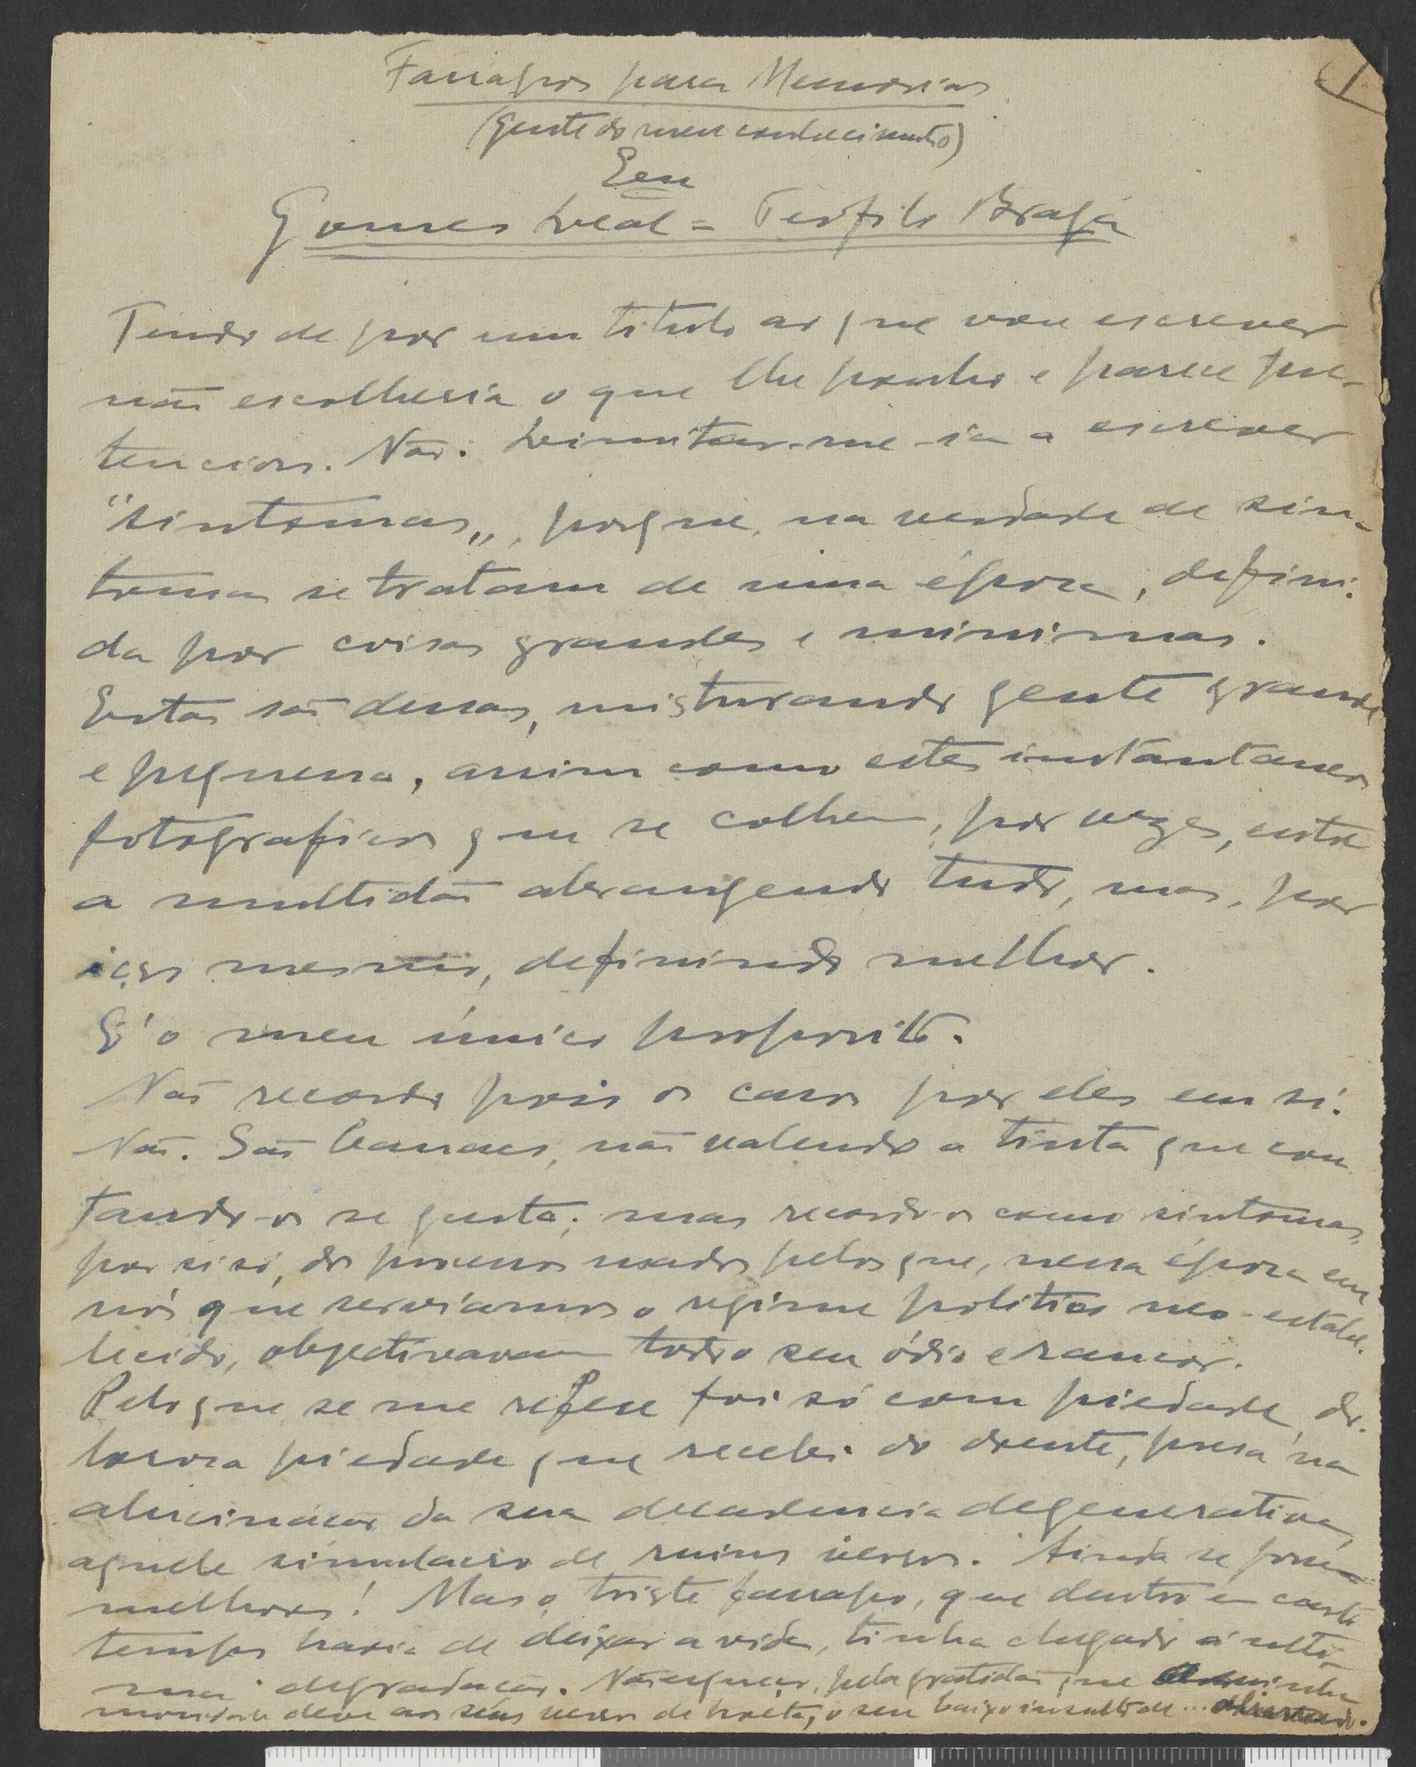 1
Farrapos para Memorias
(gente do meu conhecimento)
Eeu
Gomes Leal = Teófilo Braga
Tendo de por um titulo ao que vou escrever
não escolheria o que lhe ponho e parece pre-
tencioso. Não. Limitar-me-ia a escrever
"sintomas", porque, na verdade de sin-
tomas se tratam de uma época, defini-
da por coisas grandes e minimas.
Estas são dessas, misturando gente grande
e pequena, assim como estes instantaneos
fotograficos que se colhem, por vezes, entre
a multidão abrangendo tudo, mas, por
isso mesmo, definindo melhor.
E' o meu único proposito.
Não recordo pois os casos por eles em si.
Não. São banaes, não valendo a tinta que con
tando-os se gasta; mas recordo-os como sintomas,
por si só, do processo usado pelos que, nessa época em
nós que serviamos o regime politico neo-estabe-
lecido, objectivavam todo o seu ódio e rancor.
Pelo que se me refere foi só com piedade, do-
lorosa piedade que recebi do doente, presa na
alucinacão da sua decadencia degenerativa,
aquele simulacro de ruins versos. Ainda se fossem
melhores! Mas o triste farrapo, que dentro em curto
tempo havia de deixar a vida, tinha chegado á ulti-
ma degradacão. Não esqueço, pela gratidão que a minha
mocidade deve aos seus versos de poeta, o seu baixo insulto de ...